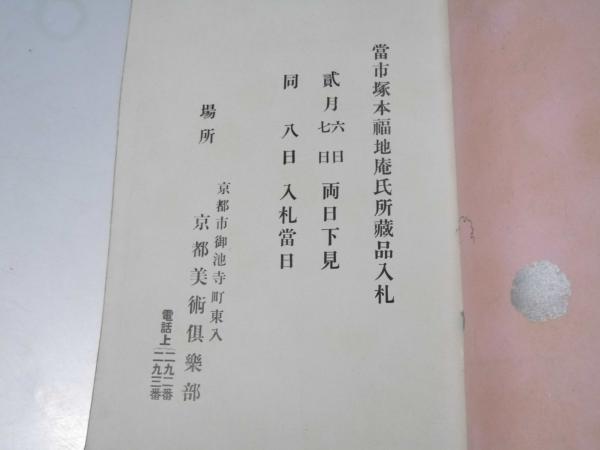 當市塚本福地庵氏所藏品入札
貳月六日七日両日下見
同八日入札當日
場所
京都市御池寺町東入
京都美術俱樂部
電話上二九二番
二九三番